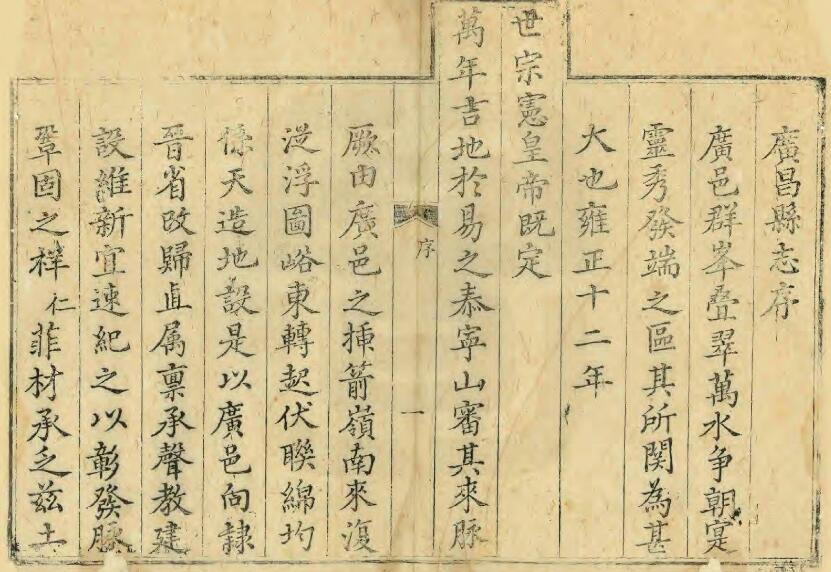 廣昌縣志序
廣邑群峯叠翠萬水争朝寔
靈秀發端之區其所関為甚
大也雍正十二年
世宗憲皇帝既定
萬年吉地於易之泰寧山審其來脉
序
一
厥由廣邑之揷箭嶺南來復
從浮圖峪東轉起伏聯綿均
係天造地設是以廣邑向隷
晉省改歸直属禀承聲教建
設維新宜速紀之以彰發脉
鞏固之祥仁菲材承乏兹土